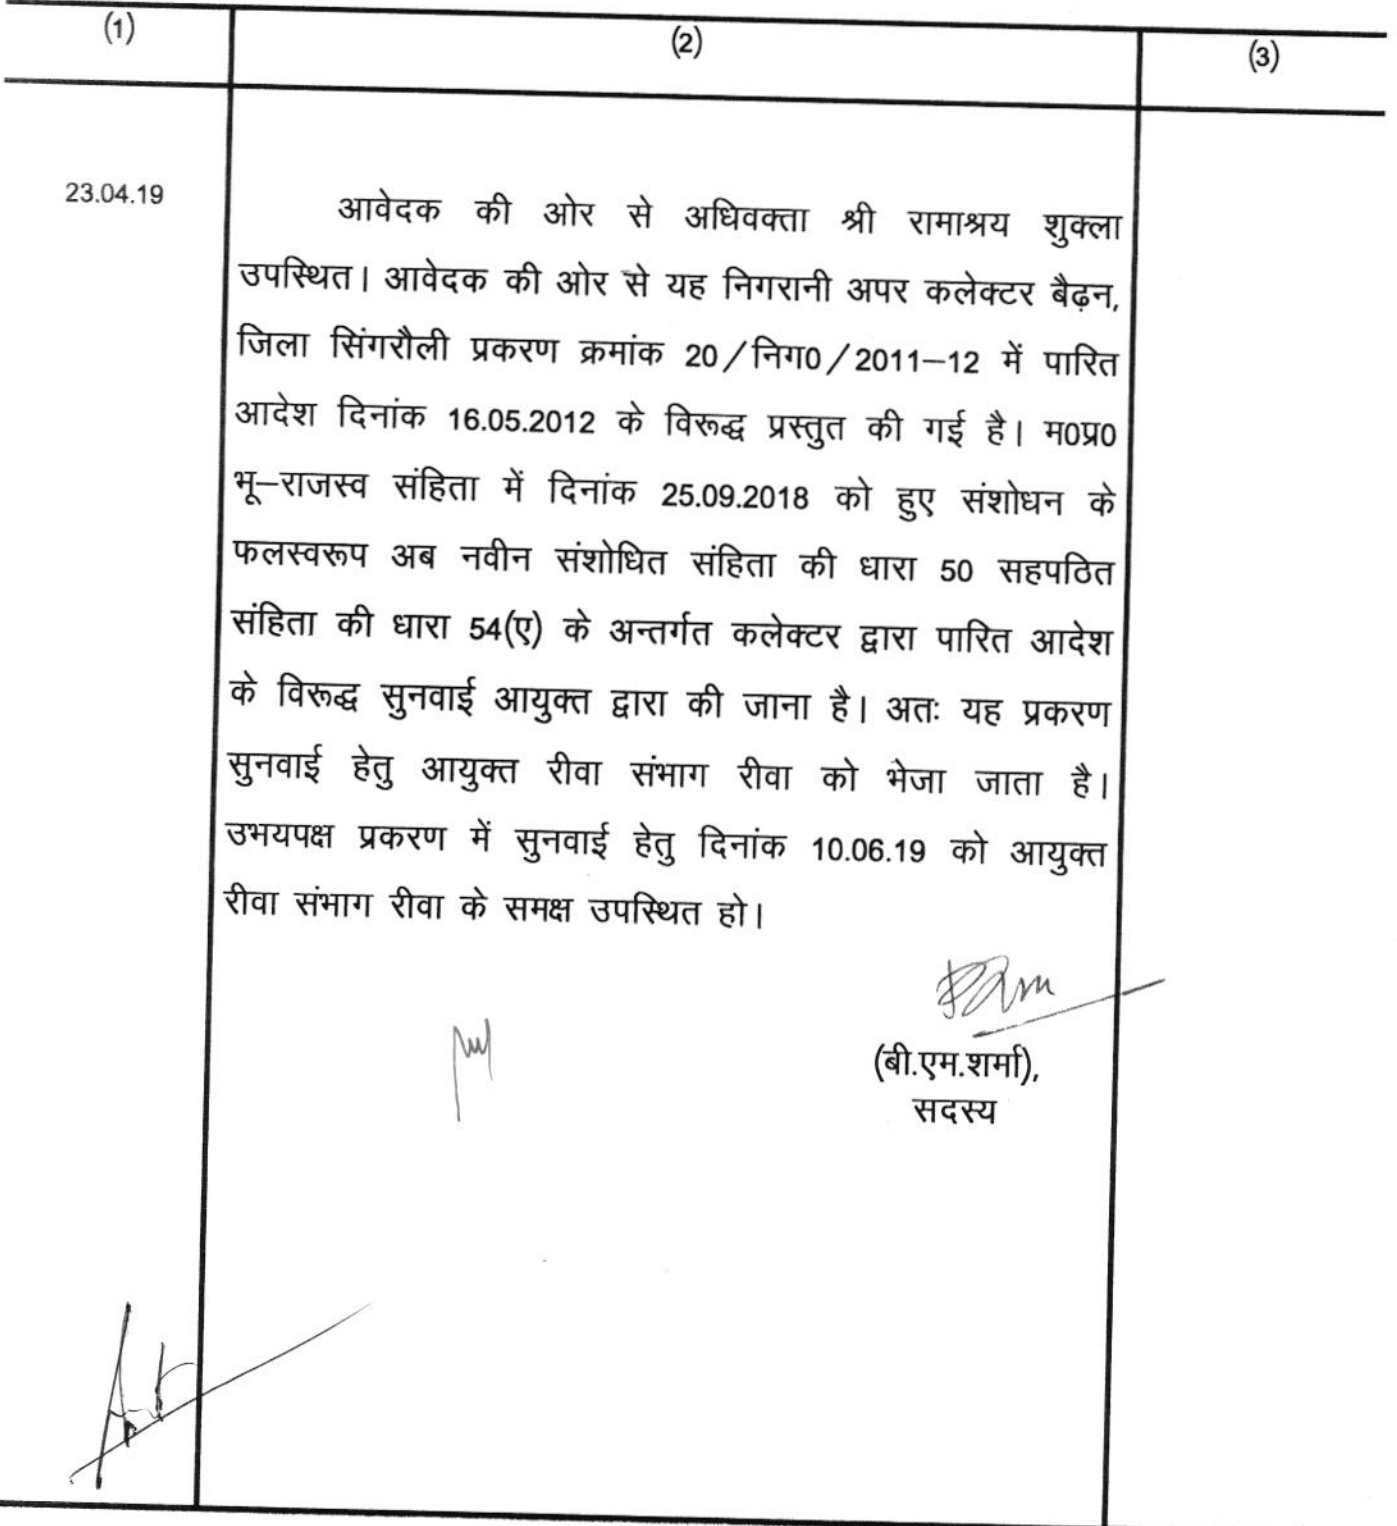 (1) (2) (3)
23.04.19
आवेदक की ओर से अधिवक्ता श्री रामाश्रय शुक्ला
उपस्थित। आवेदक की ओर से यह निगरानी अपर कलेक्टर बैढ़न,
जिला सिंगरौली प्रकरण क्रमांक 20/निग0/2011–12 में पारित
आदेश दिनांक 16.05.2012 के विरूद्ध प्रस्तुत की गई है। म0प्र0
भू–राजस्व संहिता में दिनांक 25.09.2018 को हुए संशोधन के
फलस्वरूप अब नवीन संशोधित संहिता की धारा 50 सहपठित
संहिता की धारा 54(ए) के अन्तर्गत कलेक्टर द्वारा पारित आदेश
के विरूद्ध सुनवाई आयुक्त द्वारा की जाना है। अतः यह प्रकरण
सुनवाई हेतु आयुक्त रीवा संभाग रीवा को भेजा जाता है।
उभयपक्ष प्रकरण में सुनवाई हेतु दिनांक 10.06.19 को आयुक्त
रीवा संभाग रीवा के समक्ष उपस्थित हो।
(बी.एम.शर्मा),
सदस्य